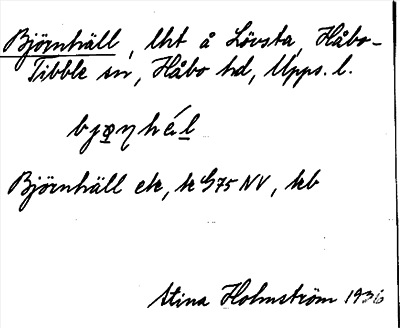 Björnhäll, lht å Lövsta, Håbo-
Tibble sn, Håbo hd, Upps. l.
bjǫηhél
Björnhäll ek, k G75 NV, kb
Stina Holmström 1936